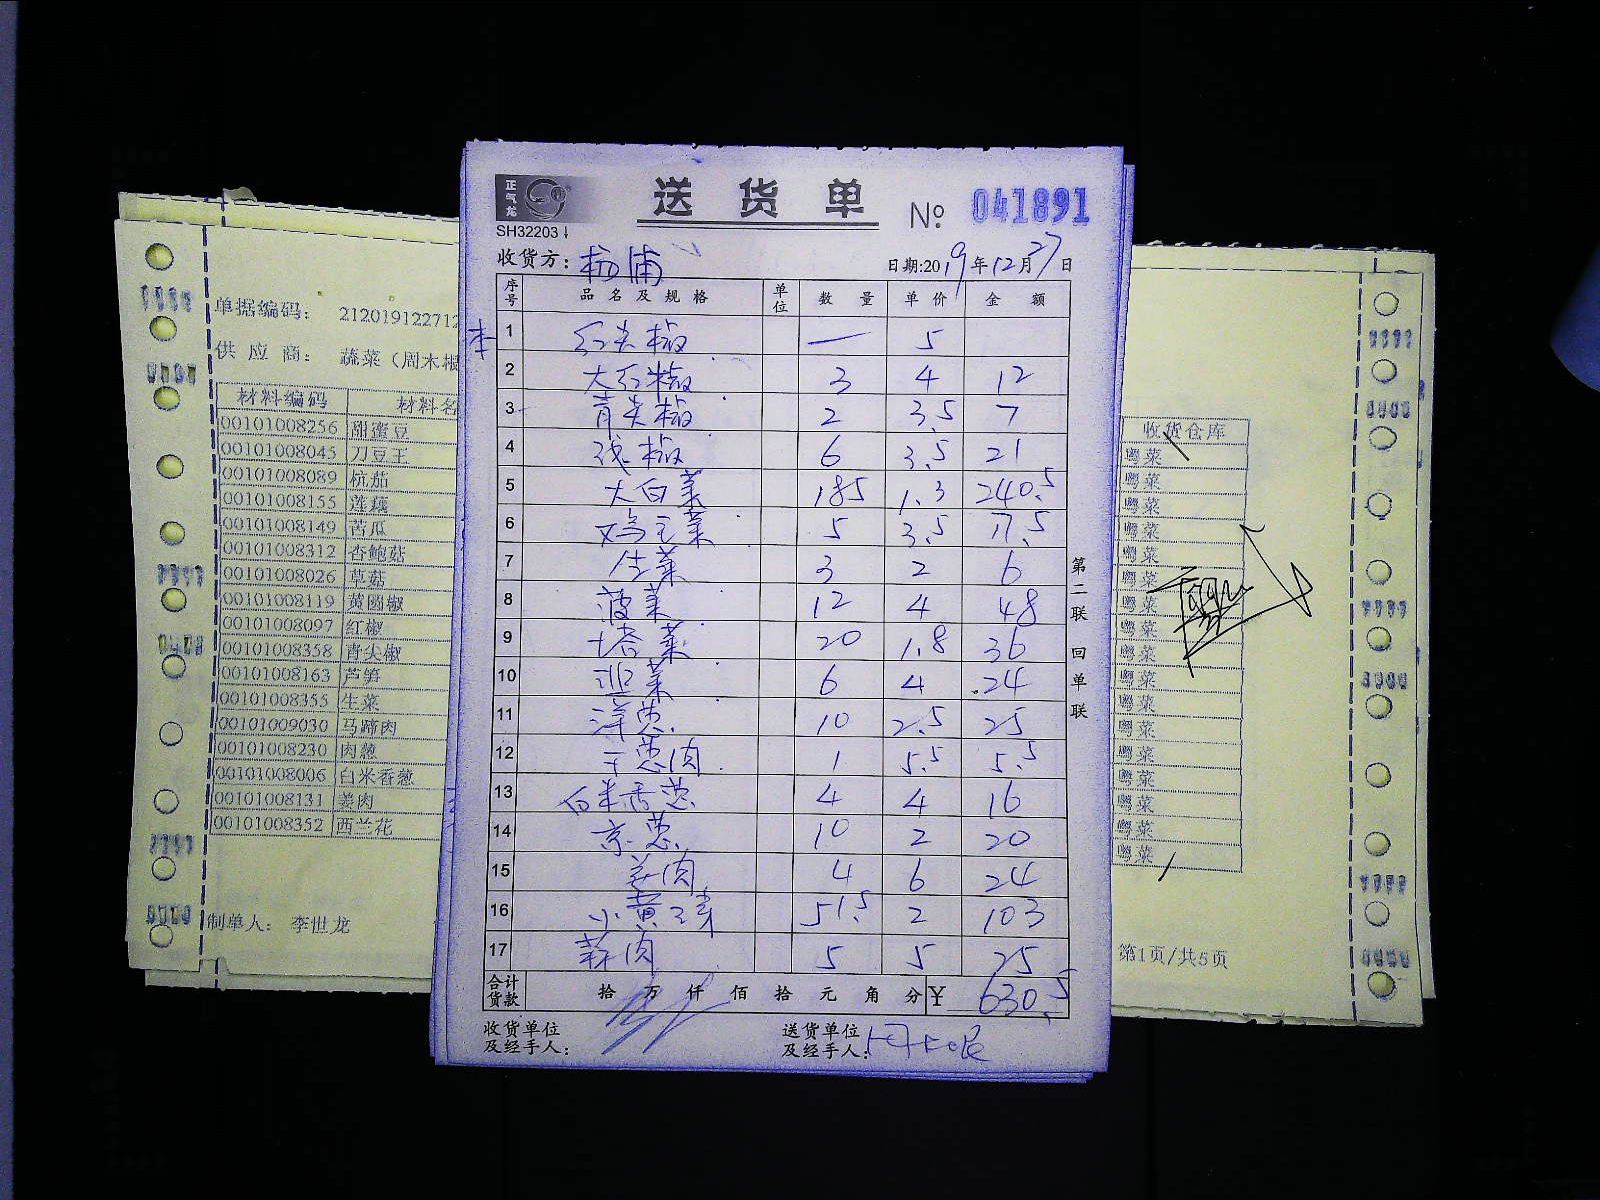 正气龙
送货单 № 041891
SH32203
收货方: 杨浦 日期:2019年12月27日
序号 品名及规格 单位 数量 单价 金额
1 红尖椒 一 5
2 大红椒 3 4 12
3 青尖椒 2 3.5 7
4 线椒 6 3.5 21
5 大白菜 185 1.3 240.5
6 鸡毛菜 5 3.5 17.5
7 生菜 3 2 6
8 菠菜 12 4 48
9 塔菜 20 1.8 36
10 菜 6 4 24
11 洋葱 10 2.5 25
12 干葱肉 1 5.5 5.5
13 白米香葱 4 4 16
14 京葱 10 2 20
15 姜肉 4 6 24
16 小黄芽 51.5 2 103
17 蒜肉 5 5 25
合计货款 拾 万 仟 佰 拾 元 角 分 ¥ 630.5
收货单位及经手人:
送货单位及经手人:
第二联 回单联
单据编码: 212019122712
供应商: 蔬菜(周木根
材料编码 材料名
00101008256 甜蜜豆
00101008045 刀豆王
00101008089 杭茄
00101008155 莲藕
00101008149 苦瓜
00101008312 杏鲍菇
00101008026 草菇
00101008119 黄圆椒
00101008097 红椒
00101008358 青尖椒
00101008163 芦笋
00101008355 生菜
00101009030 马蹄肉
00101008230 肉葱
00101008006 白米香葱
00101008131 姜肉
00101008352 西兰花
制单人: 李世龙
收货仓库
粤菜
粤菜
粤菜
粤菜
粤菜
粤菜
粤菜
粤菜
粤菜
粤菜
粤菜
粤菜
粤菜
粤菜
粤菜
粤菜
粤菜
第1页/共5页